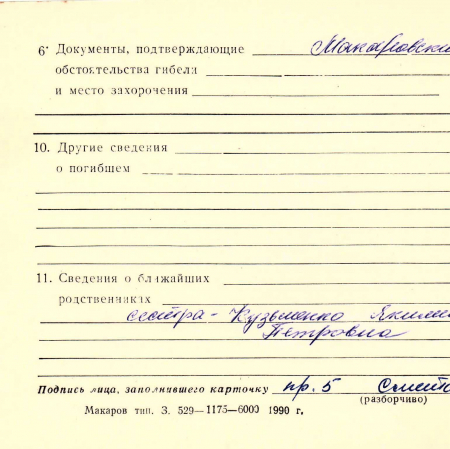 6· Документы, подтверждающие Макаровски
обстоятельства гибели
и место захорочения
10. Другие сведения
о погибшем
11. Сведения о ближайших
родственниках
сестра - Кузьменко Якими
Петровна
Подпись лица, заполнившего карточку пр. 5
(разборчиво)
Макаров тип. З. 529—1175—6000 1990 г.